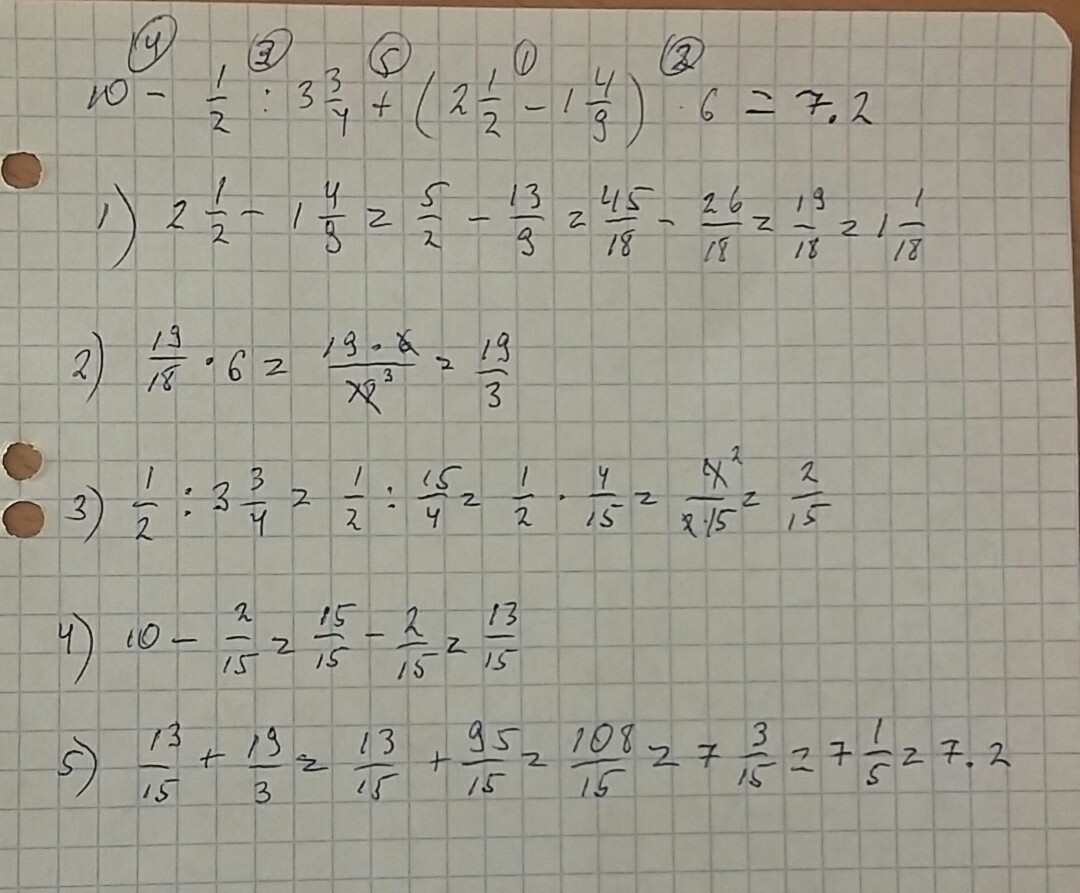 ④ ③ ⑤ ① ②
10 - 1/2 : 3 3/4 + (2 1/2 - 1 4/9) · 6 = 7.2
1) 2 1/2 - 1 4/9 = 5/2 - 13/9 = 45/18 - 26/18 = 19/18 = 1 1/18
2) 19/18 · 6 = 19·6/18 3 = 19/3
3) 1/2 : 3 3/4 = 1/2 : 15/4 = 1/2 · 4/15 = 4 2/2·15 = 2/15
4) 10 - 2/15 = 15/15 - 2/15 = 13/15
5) 13/15 + 19/3 = 13/15 + 95/15 = 108/15 = 7 3/15 = 7 1/5 = 7.2